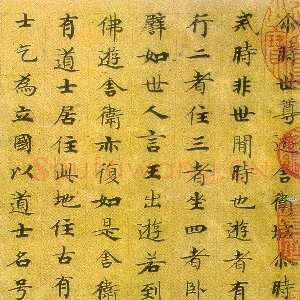 尒時世尊遊舍衛城尒時
時非世間時也遊者有
行二者住三者坐四者臥
譬如世人言王出遊若到
佛遊舍衛亦復如是舍衛
有道士居住此地住古有
士乞為立國以道士名号